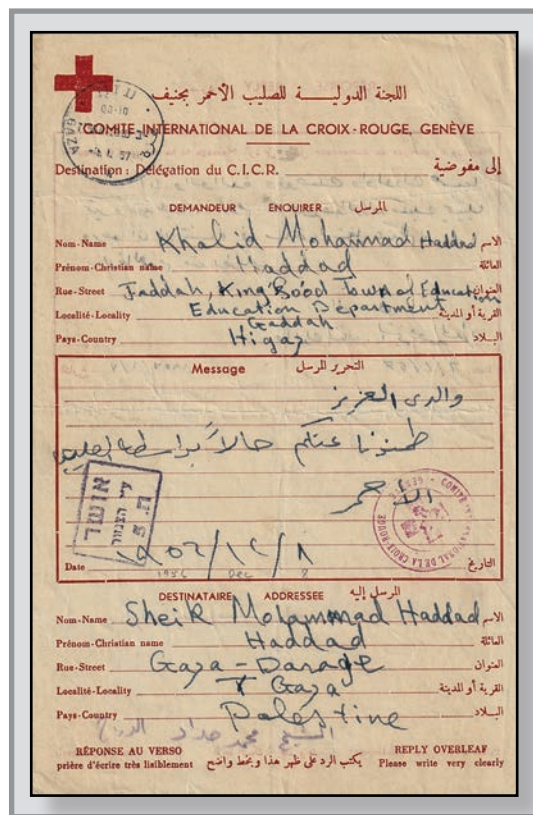 اللجنة الدوليـــة للصليب الأحمر بجنيف
COMITÉ INTERNATIONAL DE LA CROIX-ROUGE, GENÈVE
Destination: Délégation du C.I.C.R. إلى مفوضية
DEMANDEUR ENQUIRER المرسل
Nom-Name Khalid Mohammad Haddad الاسم
Prénom-Christian name Haddad العائلة
Rue-Street Jaddah, King Sood Town of Education العنوان
Localité-Locality Education Department القرية أو المدينة
Gaddah
Pays-Country Higaz البـلاد
Message التحرير المرسل
والدى العزيز
طمنونا عنكم حالاً بواسطة الصليب
الأحمر
אושר
ע״י הצנזור
Date ١٩٥٦/١٢/٨ التاريخ
1956 DEC 8
DESTINATAIRE ADDRESSEE المرسل إليه
Nom-Name Sheik Mohammad Haddad الاسم
Prénom-Christian name Haddad العائلة
Rue-Street Gaza-Darage العنوان
Localité-Locality Gaza القرية أو المدينة
Pays-Country Palestine البـلاد
الشيخ محمد حداد
RÉPONSE AU VERSO REPLY OVERLEAF
prière d'écrire très lisiblement يكتب الرد على ظهر هذا وبخط واضح Please write very clearly